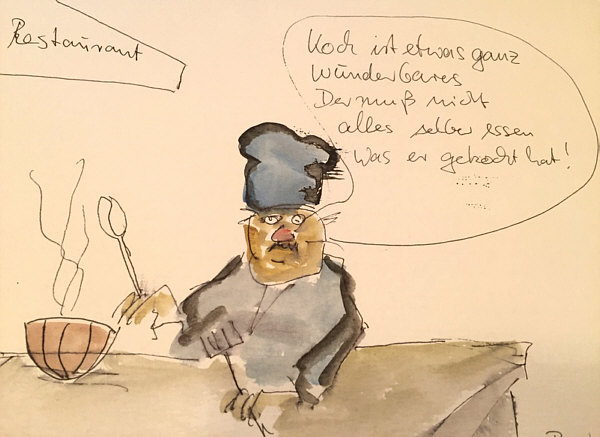 Restaurant
Koch ist etwas ganz
wunderbares
Der muß nicht
alles selber essen
was er gekocht hat!